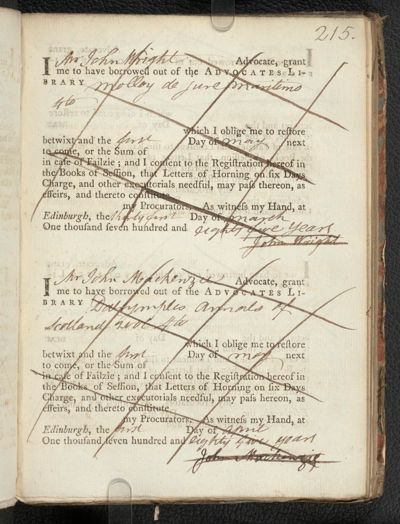 215.
I Mr John Wright Advocate, grant
me to have borrowed out of the ADVOCATES LI-
BRARY molloy de jure maritimo
4to
which I oblige me to reſtore
betwixt and the first Day of May next
to come, or the Sum of
in caſe of Failzie ; and I conſent to the Regiſtration hereof in
the Books of Seſſion, that Letters of Horning on ſix Days
Charge, and other executorials needful, may paſs thereon, as
effeirs, and thereto conſtitute
my Procurators. As witneſs my Hand, at
Edinburgh, the thirty first Day of march
One thouſand ſeven hundred and eighty five years
John Wright
I Mr John Mackenzie Advocate, grant
me to have borrowed out of the ADVOCATES LI-
BRARY Dalrymples Annals of
Scotland 2 vol. 4to
which I oblige me to reſtore
betwixt and the first Day of may next
to come, or the Sum of
in caſe of Failzie ; and I conſent to the Regiſtration hereof in
the Books of Seſſion, that Letters of Horning on ſix Days
Charge, and other executorials needful, may paſs hereon, as
effeirs, and thereto conſtitute
my Procurators. As witneſs my Hand, at
Edinburgh, the first Day of April
One thouſand ſeven hundred and eighty five years
John Mackenzie